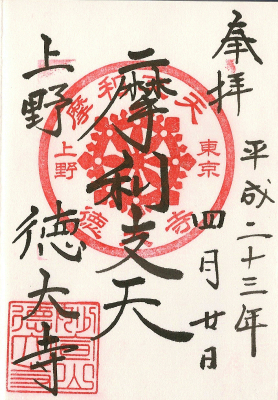 奉拝
平成二十三年
四月廿日
摩利支天
上野
徳大寺
摩利支天
東京
上野
徳大寺